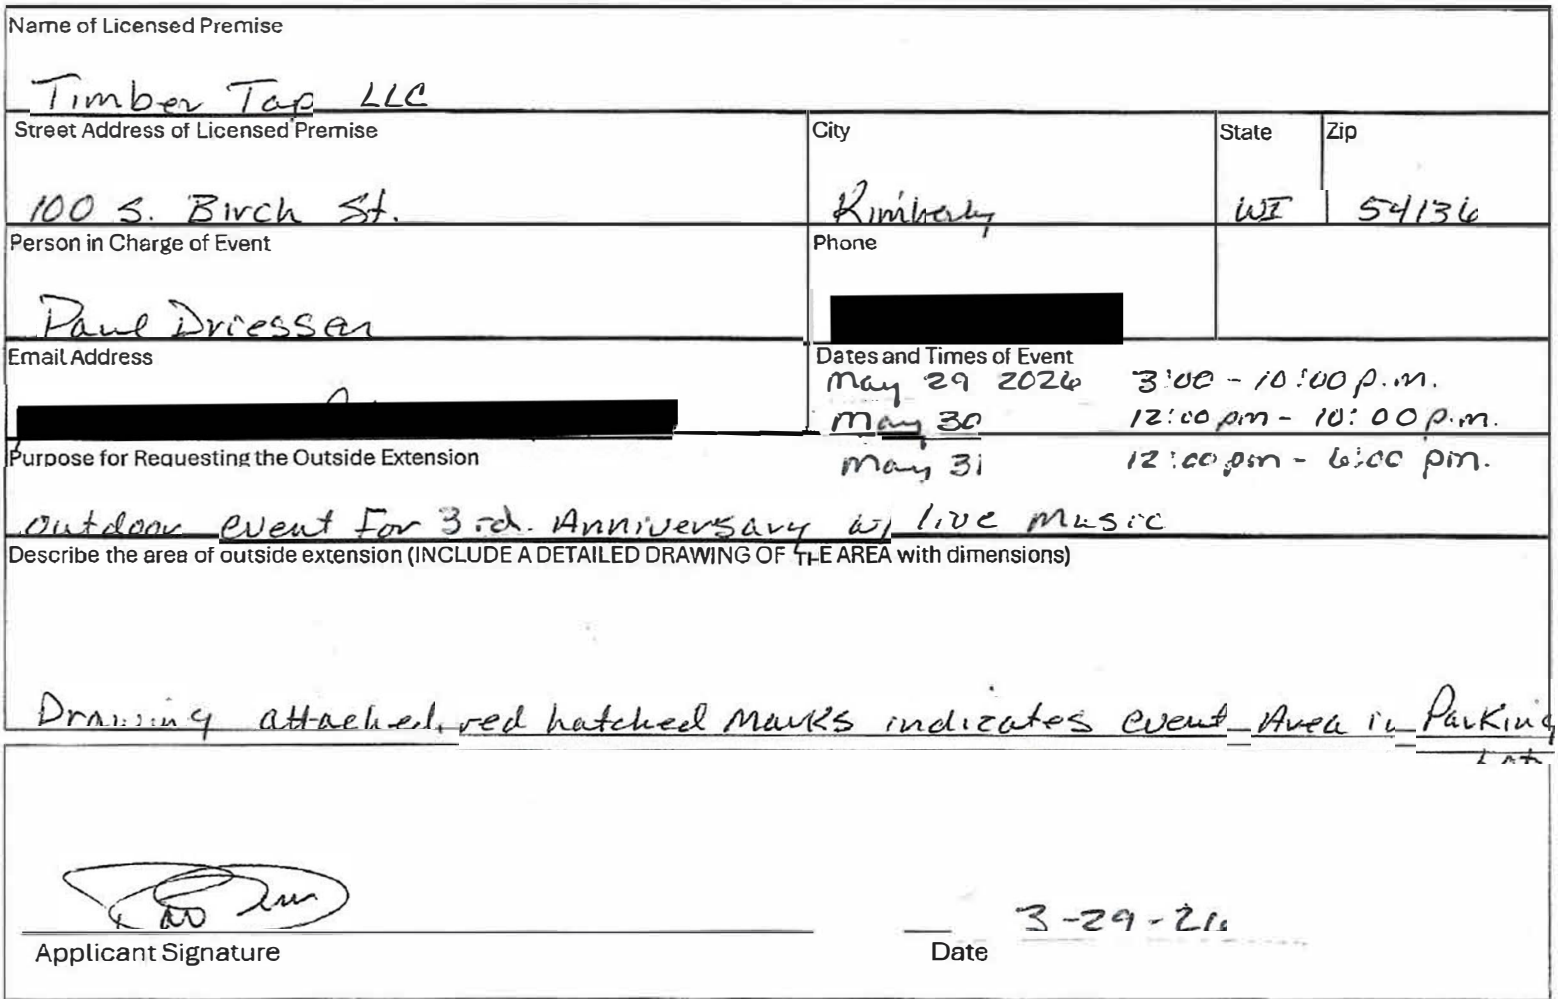 Name of Licensed Premise
Timber Tap LLC
Street Address of Licensed Premise City State Zip
100 S. Birch St. Kimberly WI 54136
Person in Charge of Event Phone
Paul Driessen
Email Address Dates and Times of Event
May 29 2026 3:00 - 10:00 p.m.
May 30 12:00 pm - 10:00 p.m.
Purpose for Requesting the Outside Extension May 31 12:00 pm - 6:00 pm.
outdoor event For 3rd. Anniversary w/ live Music
Describe the area of outside extension (INCLUDE A DETAILED DRAWING OF THE AREA with dimensions)
Drawing attached, red hatched Marks indicates event Area in Parking
Lot
3-29-26
Applicant Signature Date